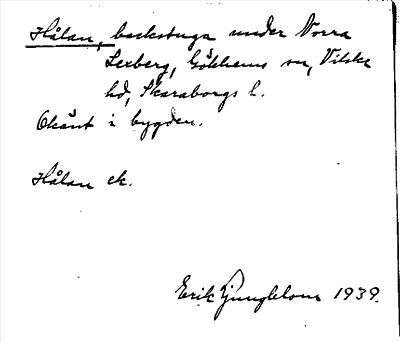 Hålan, backstuga under Norra
Lexberg, Gökhems sn, Vilske
hd, Skaraborgs l.
Okänt i bygden.
Hålan ek.
Erik Ljungblom 1939.